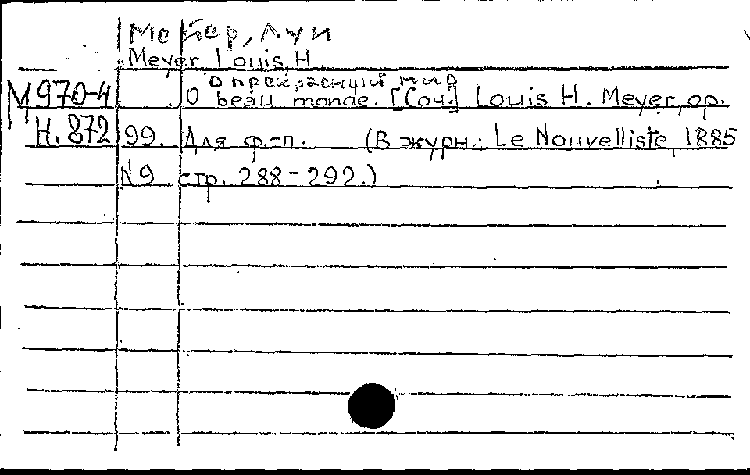 Мейер, Луи
Meyer Louis H.
О прекрасный мир
М970-4 O beau monde. [Соч.] Louis H. Meyer, op.
Н.872 99. Для ф-п. (В журн.: Le Nouvelliste, 1885
N9 стр. 288-292.)